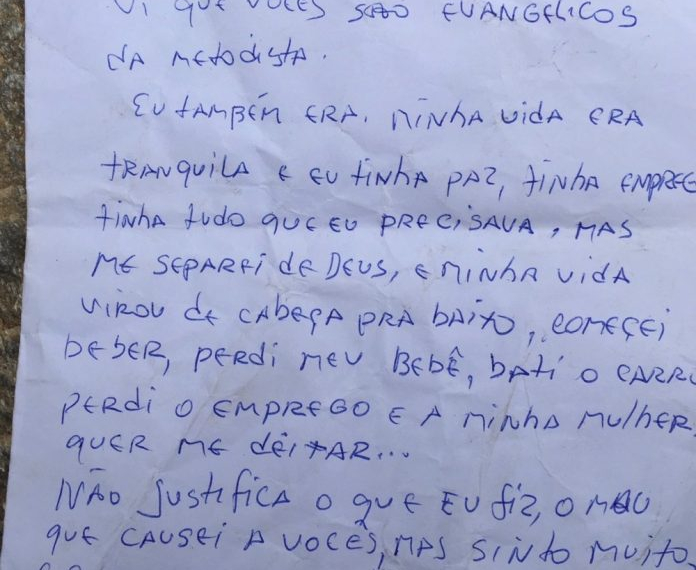 VI QUE VOCÊS SÃO EVANGÉLICOS
DA METODISTA.
EU TAMBÉM ERA. MINHA VIDA ERA
TRANQUILA E EU TINHA PAZ, TINHA EMPREG
TINHA TUDO QUE EU PRECISAVA, MAS
ME SEPAREI DE DEUS, E MINHA VIDA
VIROU DE CABEÇA PRA BAIXO, COMEÇEI
BEBER, PERDI MEU BEBÊ, BATI O CARRO
PERDI O EMPREGO E A MINHA MULHER
QUER ME DEIXAR...
NÃO JUSTIFICA O QUE EU FIZ, O MAU
QUE CAUSEI A VOCÊS, MAS SINTO MUITO